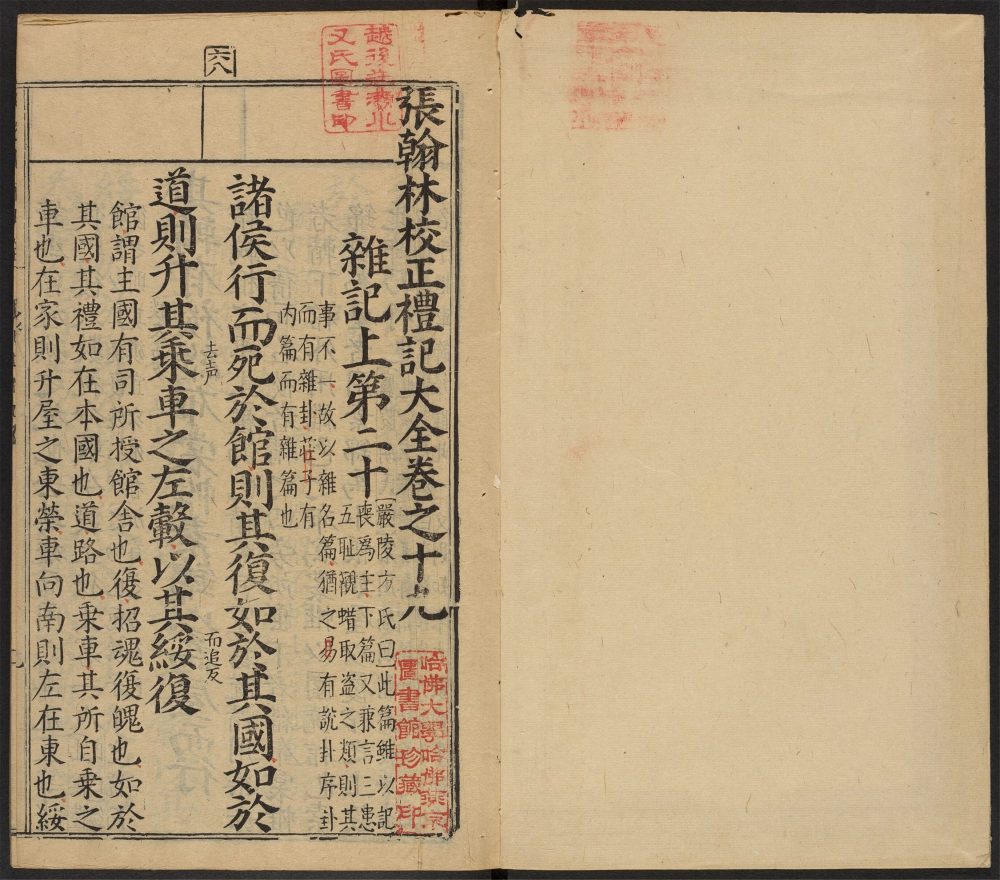 張翰林校正禮記大全卷之十九
雜記上第二十
嚴陵方氏曰此篇雖以記
喪為主下篇又兼言三患
五耻觀蜡取盗之類則其
事不一故以雜名篇猶之易有說卦序卦
而有雜卦莊子有
内篇而有雜篇也
諸侯行而死於館則其復如於其國如於
道則升其乘去声車之左轂以其綏而追反復
館謂主國有司所授館舍也復招魂復魄也如於
其國其禮如在本國也道路也乘車其所自乗之
車也在家則升屋之東榮車向南則左在東也綏
六八
哈佛大學哈佛燕京
圖書館珍藏印
氏圖書印